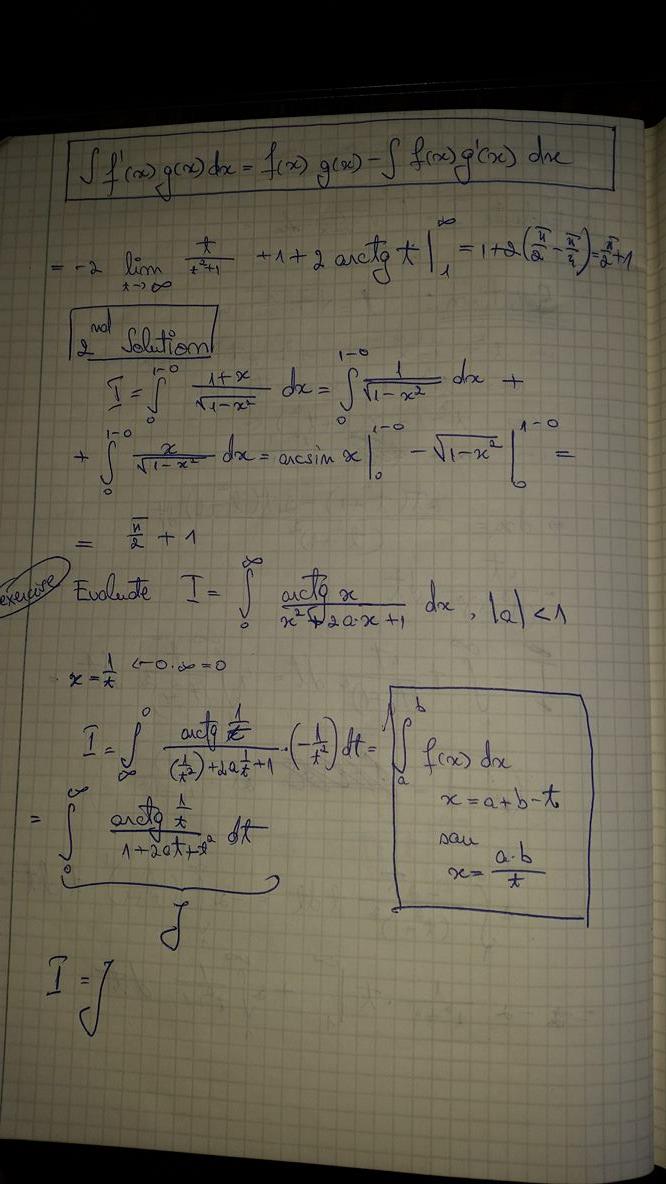 ∫ f'(x) g(x) dx = f(x) g(x) - ∫ f(x) g'(x) dx
= -2 lim_{t→∞} t/(t²+1) + 1 + 2 arctg t |_1^∞ = 1+2(π/2 - π/4) = π/2 + 1
2nd Solution
I = ∫_0^{1-0} (1+x)/√(1-x²) dx = ∫_0^{1-0} 1/√(1-x²) dx +
+ ∫_0^{1-0} x/√(1-x²) dx = arcsin x |_0^{1-0} - √(1-x²) |_0^{1-0} =
= π/2 + 1
exercise
Evaluate I = ∫_0^∞ arctg x/(x²+2a·x+1) dx, |a| < 1
x = 1/t ← 0·∞ = 0
I = ∫_∞^0 arctg 1/t / ((1/t²)+2a 1/t+1) · (-1/t²) dt =
= ∫_0^∞ arctg 1/t / (1+2at+t²) dt
J
∫_a^b f(x) dx
x = a+b-t
sau
x = a·b/t
I = J